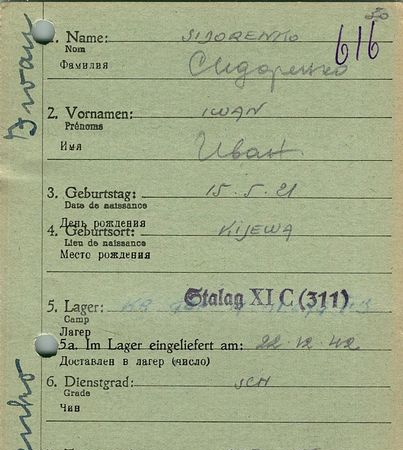 1. Name: SIDORENKO 616
Nom
Фамилия Сидоренко
2. Vornamen: IWAN
Prénoms
Имя Иван
3. Geburtstag: 15. 5. 21
Date de naissance
День рождения
4. Geburtsort: KIJEWA
Lieu de naissance
Место рождения
5. Lager: Stalag XI C (311)
Camp
Лагерь
5a. Im Lager eingeliefert am: 22. 12. 42
Доставлен в лагер (число)
6. Dienstgrad: SCH
Grade
Чин